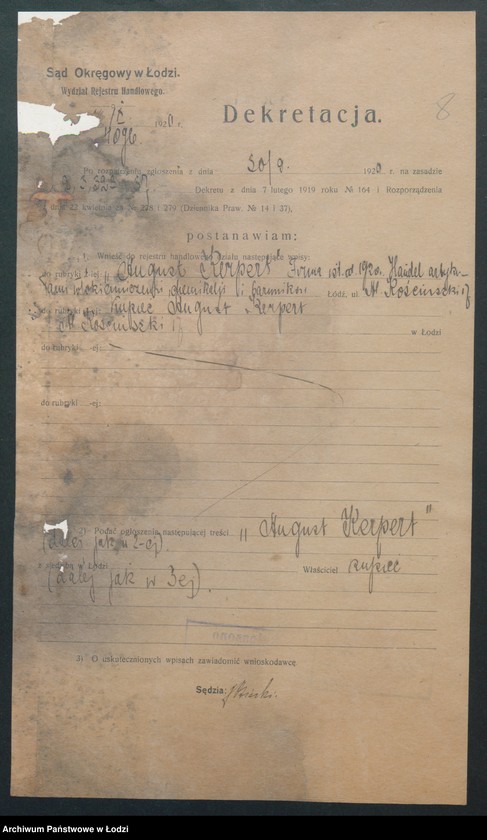 Sąd Okręgowy w Łodzi.
Wydział Rejestru Handlowego.
1920 r.
Dekretacja.
8
Po rozpoznaniu zgłoszenia z dnia 30/9. 1920. r. na zasadzie
Dekretu z dnia 7 lutego 1919 roku № 164 i Rozporządzenia
z dnia 22 kwietnia № 278 i 279 (Dziennika Praw. № 14 i 37),
postanawiam:
1. Wnieść do rejestru handlowego działu następujące wpisy:
do rubryki "August Kerpert" Firma istn. od 1920. Handel artyku-
łami Łódź, ul. Kościuszki
do rubryki Kupiec August Kerpert
Kościuszki w Łodzi
do rubryki -ej:
do rubryki -ej:
2) Podać ogłoszenie następującej treści "August Kerpert"
(dalej jak w 2-ej).
z siedzibą w Łodzi Właściciel kupiec
(dalej jak w 3ej).
3) O uskutecznionych wpisach zawiadomić wnioskodawcę.
Sędzia:
Archiwum Państwowe w Łodzi